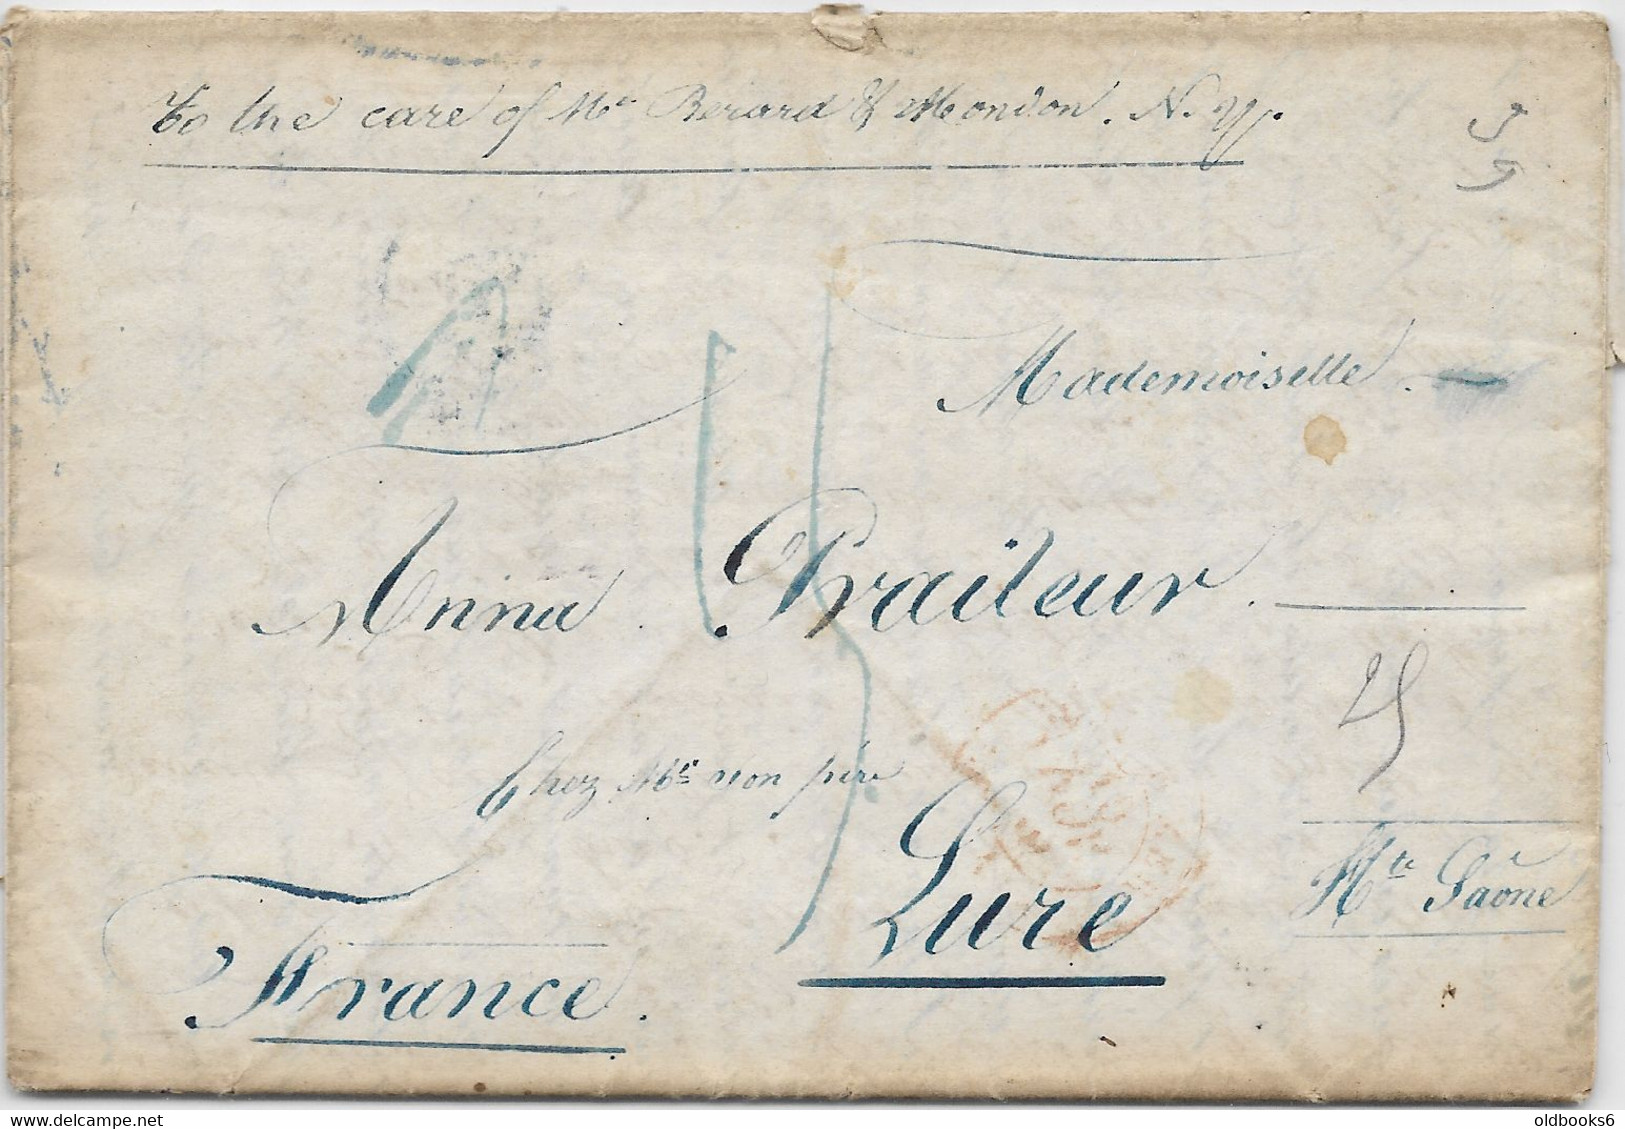 To the care of Mrs Berard & Mondon. N. Y.
Mademoiselle
Anna Praileur.
15
25
Chez Mr son père
Lure
Hte Saône
France.
www.delcampe.net
oldbooks6